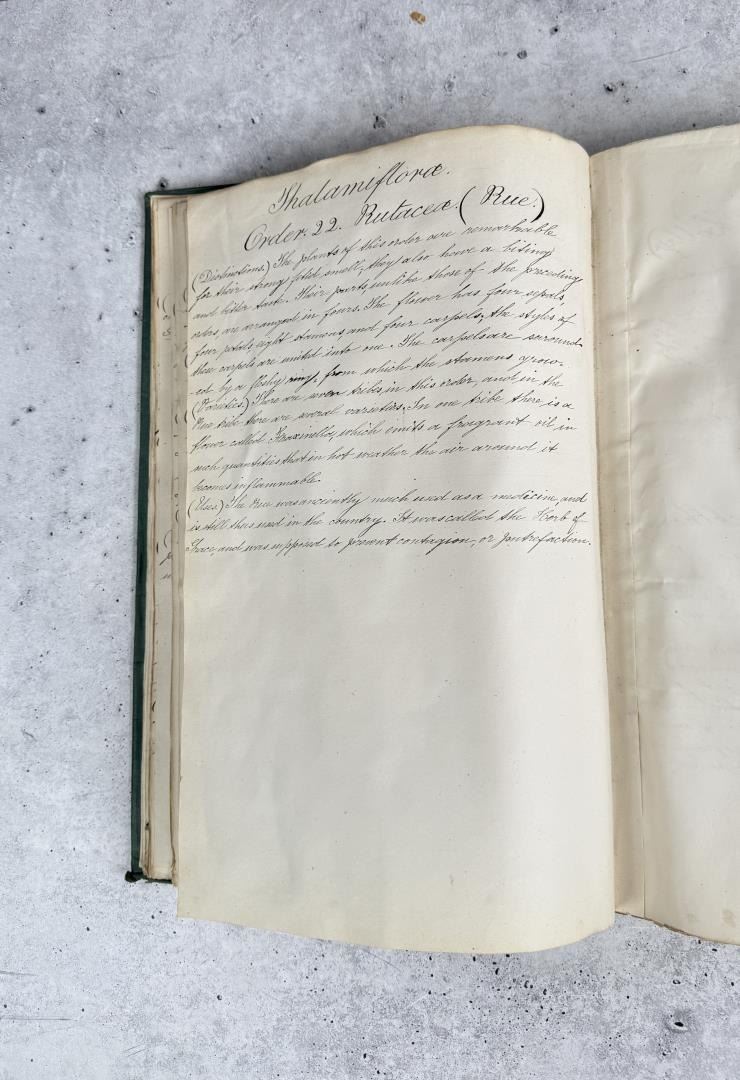 Thalamifloræ.
Order. 22. Rutaceæ. (Rue.)
(Distinctions.) The plants of this order are remarkable
for their strong fœtid smell; they also have a biting
and bitter taste. Their parts, unlike those of the preceding
orders, are arranged in fours. The flower has four sepals,
four petals, eight stamens, and four carpels; the styles of
these carpels are united into one. The carpels are surround-
ed by a fleshy ring, from which the stamens grow.
(Varieties.) There are seven tribes, in this order, and in the
Rue tribe there are several varieties. In one tribe there is a
flower called Fraxinella, which emits a fragrant oil in
such quantities that in hot weather the air around it
becomes inflammable.
(Uses.) The Rue was anciently much used as a medicine, and
is still thus used in the country. It was called the Herb of
Grace, and was supposed to prevent contagion, or putrefaction.